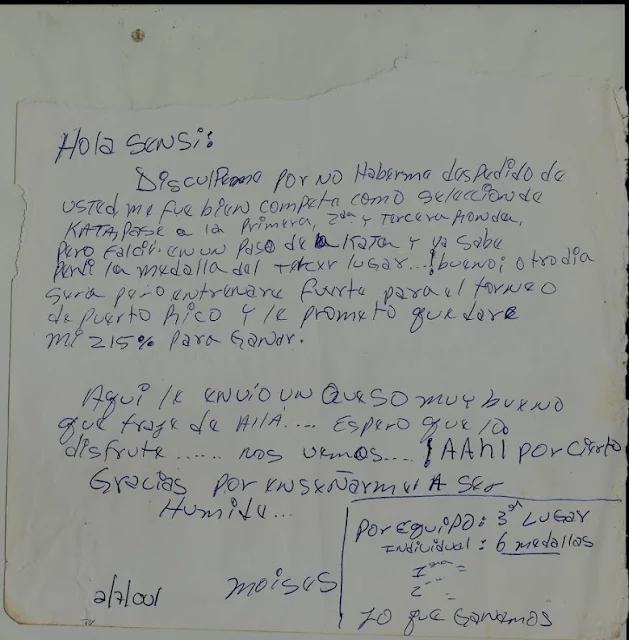 Hola SENSi:
Disculpeme por no Haberme despedido de
usted, me fue bien competi como seleccion de
KATA, Pase a la Primera, 2da y Tercera Ronda,
pero falle en un paso de la Kata y ya sabe
Perdi la medalla del tercer lugar...! bueno; otro dia
sera pero entrenare fuerte para el torneo
de puerto Rico y le prometo que dare
mi 215% para Ganar.
Aqui le envio un Queso muy bueno
que traje de AllÁ.... Espero que lo
disfrute ...... nos vemos.... ¡AAh! por cierto
Gracias por enseÑarme A ser
Humilde...
Por Equipo: 3er LUGAR
Individual: 6 medallas
Lo que Ganamos
Moises
2/7/001